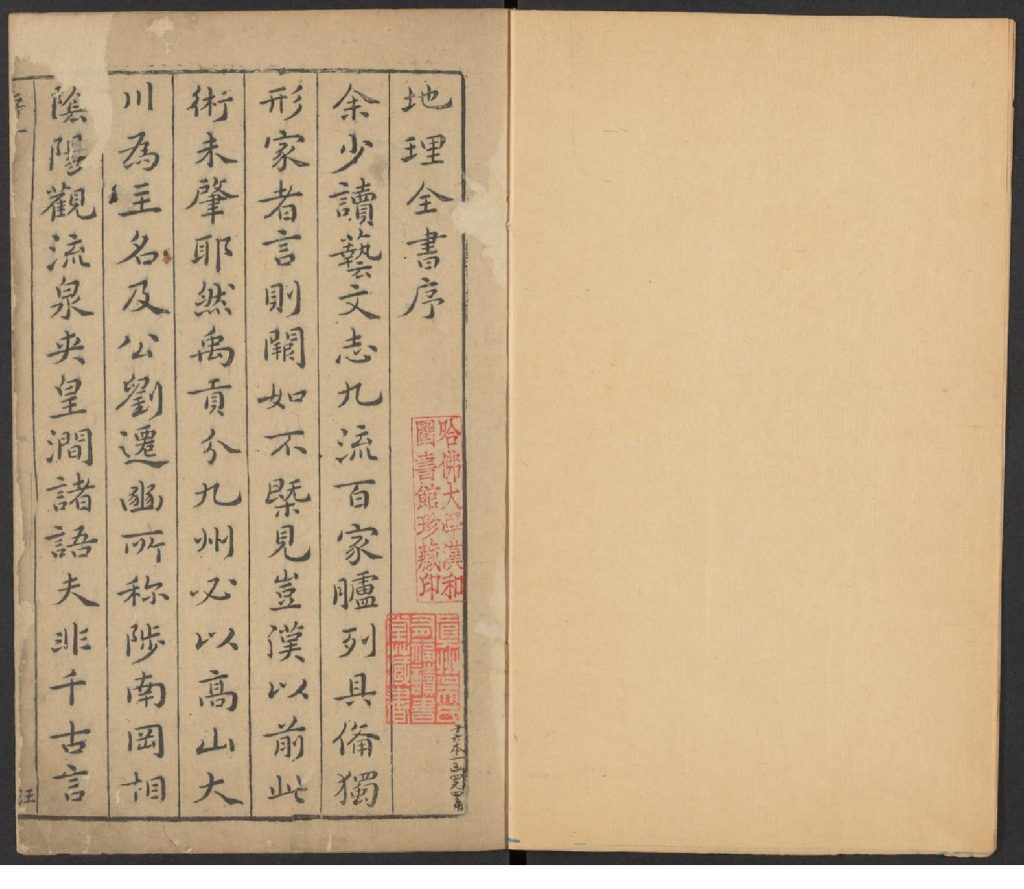 地理全書序
余少讀藝文志九流百家臚列具備獨
形家者言則闕如不槩見豈漢以前此
術未肇耶然禹貢分九州必以高山大
川為主名及公劉遷豳所称陟南岡相
陰陽觀流泉夾皇澗諸語夫非千古言
序一
汪
哈佛大學漢和
圖書館珍藏印